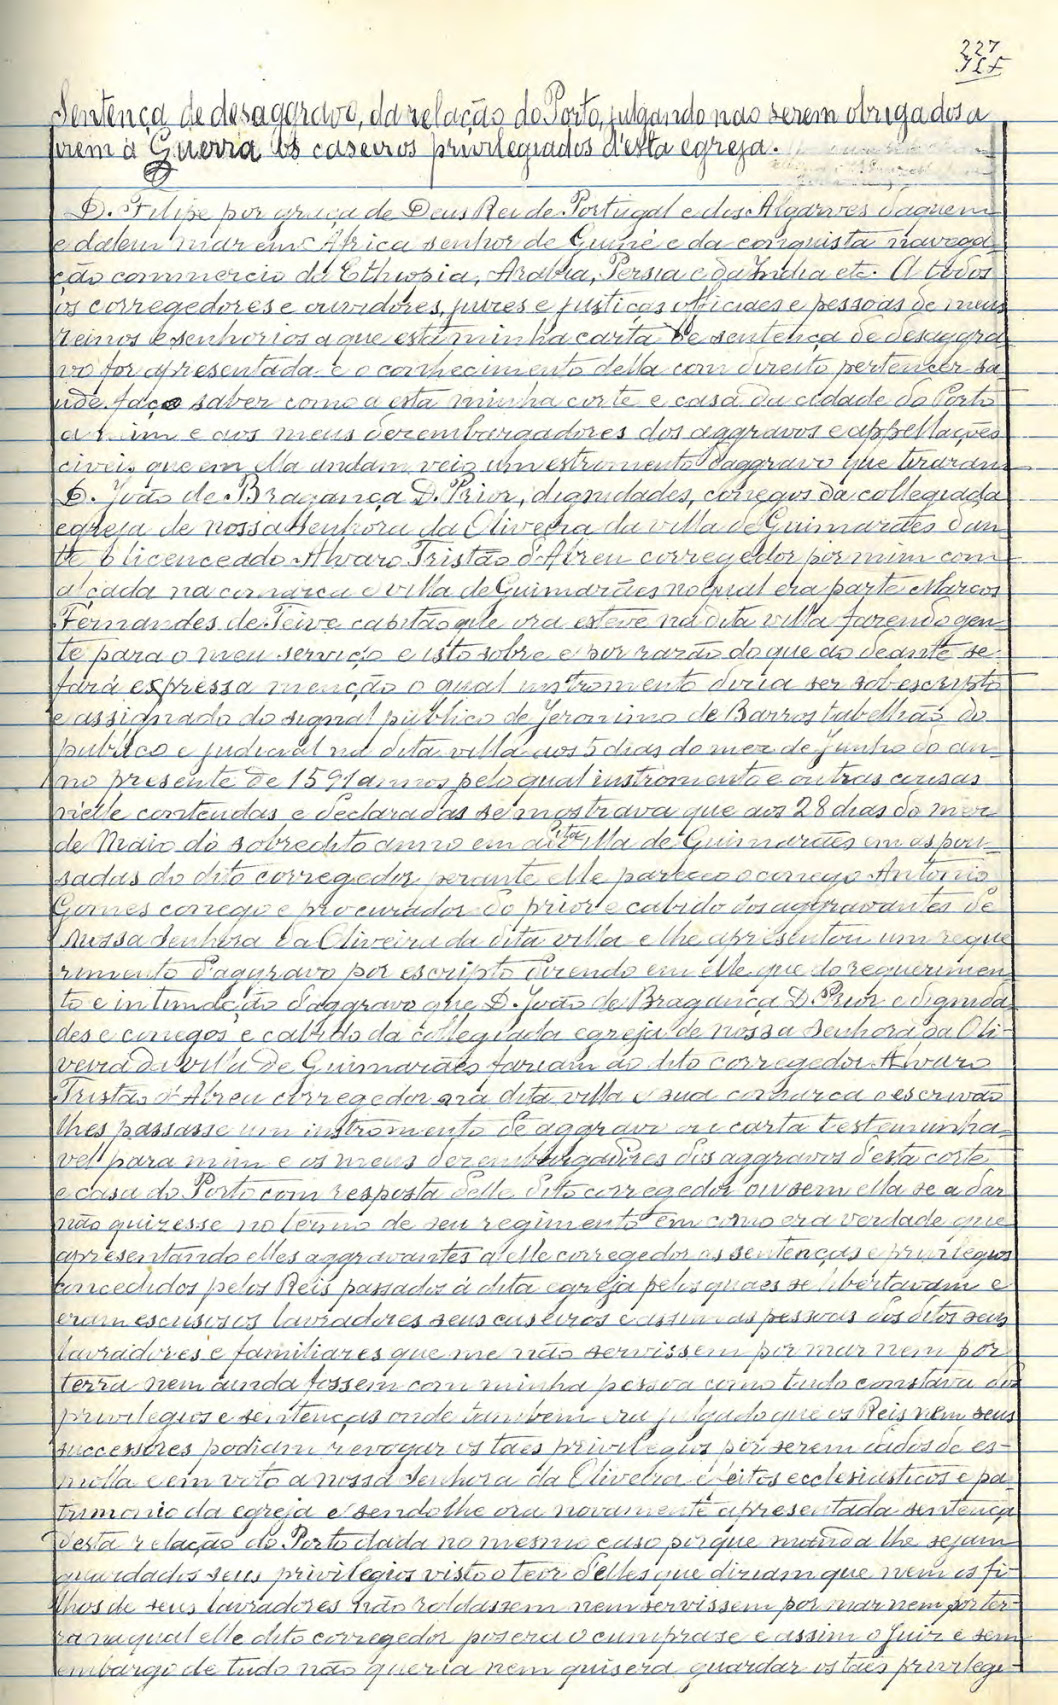 227
Sentença de desaggravo, da relação do Porto, julgando nao serem obrigados a
irem à Guerra os caseiros privilegiados d'esta egreja.
D. Filipe por graça de Deus Rei de Portugal e dos Algarves daquem
e dalem mar em Africa senhor de Guiné e da conquista navega-
ção commercio da Ethiopia, Arabia, Persia e da India etc. A todos
os corregedores e ouvidores, juizes e justiças officiaes e pessoas de meus
reinos e senhorios a que esta minha carta de sentença de desaggra-
vo for apresentada e o conhecimento della com direito pertencer sa-
ude. faço saber como a esta minha corte e casa da cidade do Porto
a mim e aos meus desembargadores dos aggravos e appellações
civeis que em ella andam veio um estromento d'aggravo que tiraram
D. João de Bragança D. Prior, dignidades, conegos da collegiada
egreja de nossa Senhora da Oliveira da villa de Guimarães dan-
te o licenceado Alvaro Tristão d'Abreu corregedor por mim com
alçada na comarca e villa de Guimarães no qual era parte Marcos
Fernandes de Teive capitão que ora esteve na dita villa fazendo gen-
te para o meu serviço e isto sobre e por razão do que ao deante se
fará expressa menção o qual instromento dizia ser sob escripto
e assignado do signal publico de Jeronimo de Barros tabellião do
publico e judicial na dita villa aos 5 dias do mez de Junho do an-
no presente de 1591 annos pelo qual instromento e outras cousas
n'elle contendas e declaradas se mostrava que aos 28 dias do mez
de Maio do sobredito anno em a dita villa de Guimarães em as pou-
sadas do dito corregedor perante elle pareceo o conego Antonio
Gomes conego e procurador do prior e cabido dos aggravantes de
Nossa Senhora da Oliveira da dita villa e lhe apresentou um reque
rimento d'aggravo por escripto dizendo em elle que do requerimen-
to e intimação d'aggravo que D. João de Bragança D. Prior e dignida-
des e conegos e cabido da collegiada egreja de nossa Senhora da Oli-
veira da villa de Guimarães faziam ao dito corregedor Alvaro
Tristão d'Abreu corregedor na dita villa e sua comarca o escrivão
lhes passasse um instromento de aggravo ou carta testeminha-
vel para mim e os meus desembargadores dos aggravos d'esta corte
e casa do Porto com resposta d'elle dito corregedor ou sem ella se a dar
não quizesse no termo de seu regimento em como era verdade que
apresentando elles aggravantes a elle corregedor as sentenças e privilegios
concedidos pelos Reis passados á dita egreja pelos quaes se libertavam e
eram escusos os lavradores seus caseiros e assim as pessoas dos ditos seus
lavradores e familiares que me não servissem por mar nem por
terra nem ainda fossem com minha pessoa como tudo constava dos
privilegios e sentenças onde tambem era julgado que os Reis nem seus
successores podiam revogar os taes privilegios por serem dados de es-
molla e em voto a nossa Senhora da Oliveira e feitos ecclesiasticos e pa-
trimonio da egreja e sendolhe ora novamente apresentada sentença
desta relação do Porto dada no mesmo caso porque manda lhe sejam
guardados seus privilegios visto o teor d'elles que diziam que nem os fi-
lhos de seus lavradores não roldassem nem servissem por mar nem por ter-
ra na qual elle dito corregedor posera o cumprase e assim o Juiz e sem
embargo de tudo não queria nem quisera guardar os taes privilegi-